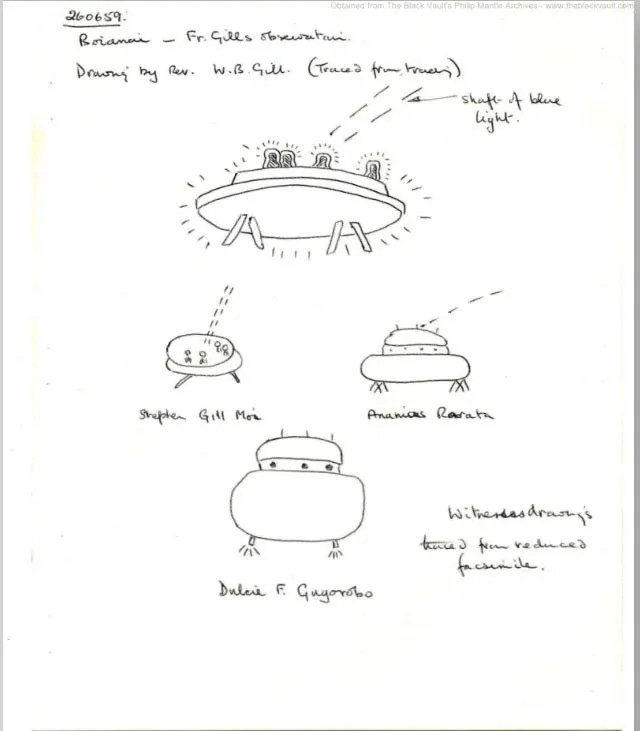 Obtained from The Black Vault's Philip Mantle Archives - www.theblackvault.com
260659.
Boianai - Fr. Gill's observation.
Drawing by Rev. W.B. Gill. (Traced from tracing)
shaft of blue
light.
Stephen Gill Moi
Ananias Rarata
Witnesses drawings
traced from reduced
facsimile.
Dulcie F. Guyorobo